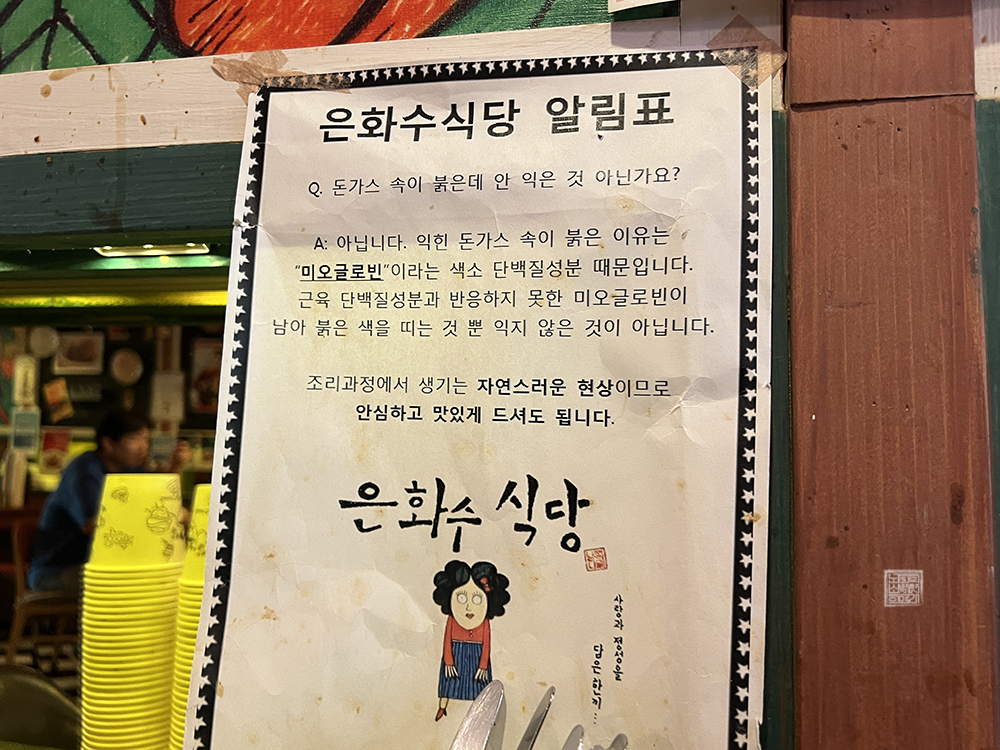 은화수식당 알림표
Q. 돈가스 속이 붉은데 안 익은 것 아닌가요?
A: 아닙니다. 익힌 돈가스 속이 붉은 이유는
“미오글로빈”이라는 색소 단백질성분 때문입니다.
근육 단백질성분과 반응하지 못한 미오글로빈이
남아 붉은 색을 띠는 것 뿐 익지 않은 것이 아닙니다.
조리과정에서 생기는 자연스러운 현상이므로
안심하고 맛있게 드셔도 됩니다.
은화수 식당
사랑과 정성을
담은 한끼...